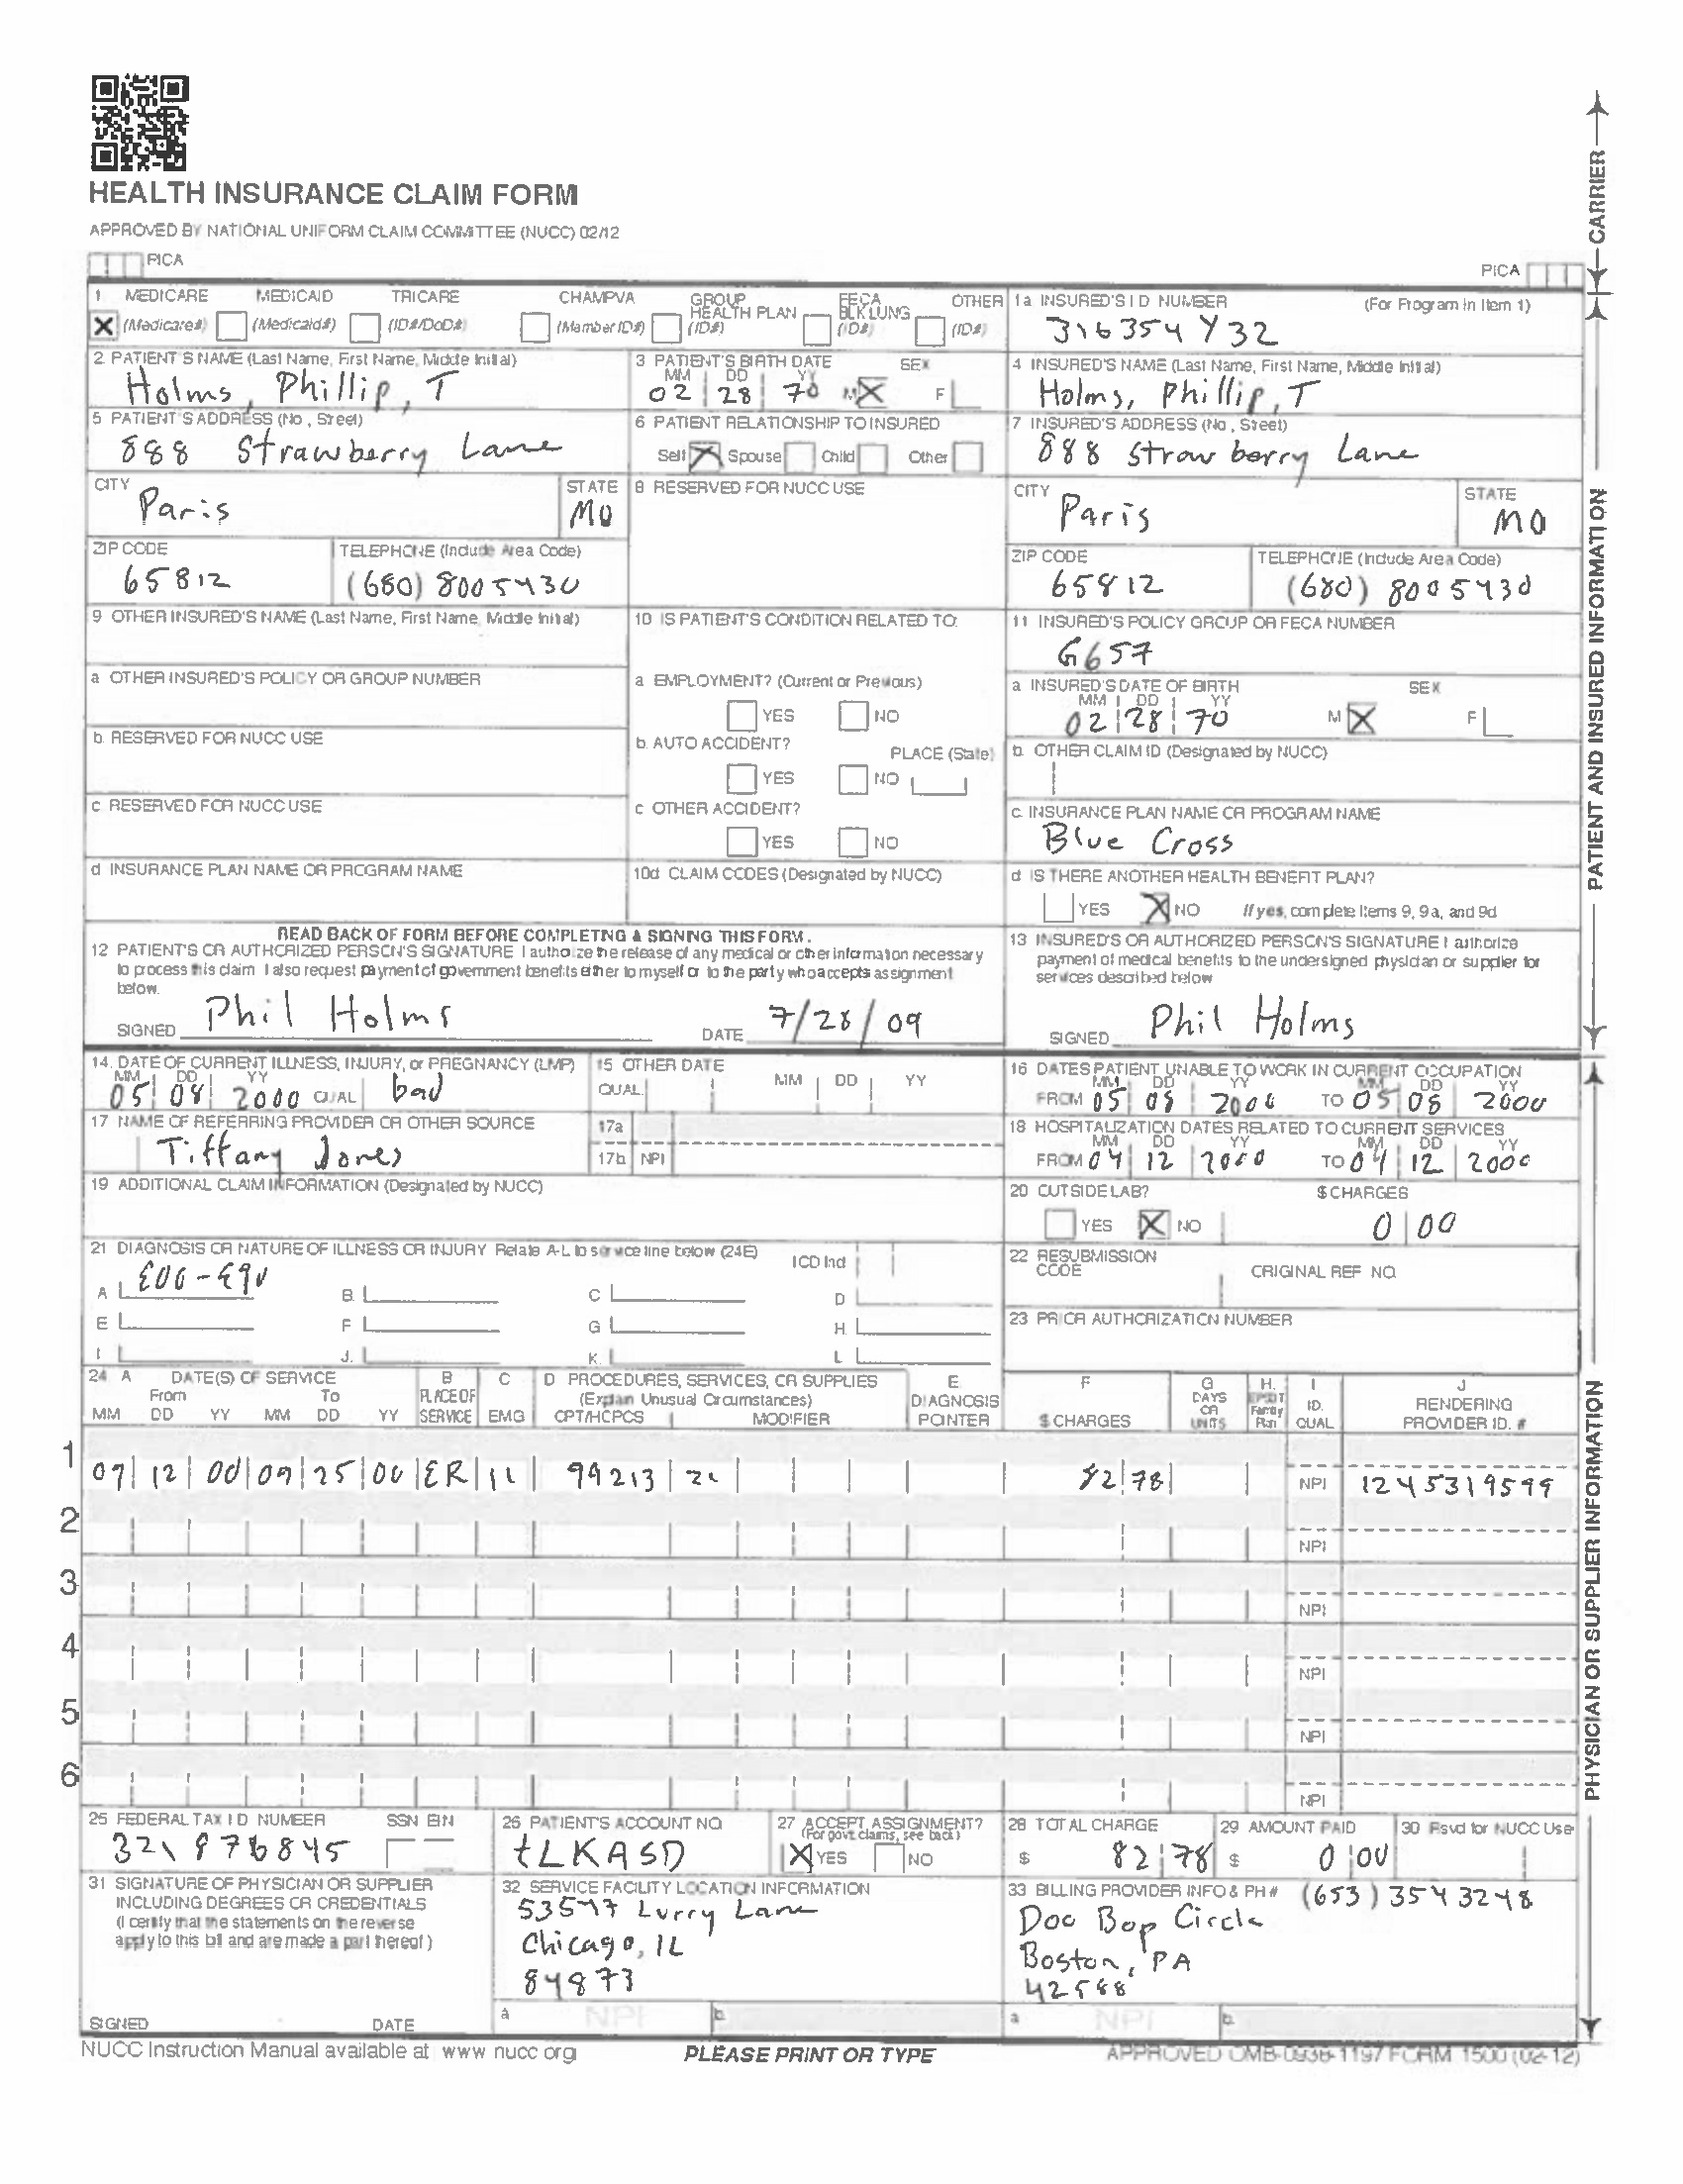 HEALTH INSURANCE CLAIM FORM
APPROVED BY NATIONAL UNIFORM CLAIM COMMITTEE (NUCC) 02/12
PICA
PICA
CARRIER
1 MEDICARE MEDICAID TRICARE CHAMPVA GROUP HEALTH PLAN FECA BLK LUNG OTHER
(Medicare#) (Medicaid#) (ID#/DoD#) (Member ID#) (ID#) (ID#) (ID#)
1a INSURED'S I D NUMBER (For Program in Item 1)
316354Y32
2 PATIENT'S NAME (Last Name, First Name, Middle Initial)
Holms, Phillip, T
3 PATIENT'S BIRTH DATE SEX
MM DD YY
02 28 70 M F
4 INSURED'S NAME (Last Name, First Name, Middle Initial)
Holms, Phillip, T
5 PATIENT'S ADDRESS (No , Street)
888 Strawberry Lane
6 PATIENT RELATIONSHIP TO INSURED
Self Spouse Child Other
7 INSURED'S ADDRESS (No , Street)
888 Strawberry Lane
CITY
Paris
STATE
MO
8 RESERVED FOR NUCC USE
CITY
Paris
STATE
MO
ZIP CODE
65812
TELEPHONE (Include Area Code)
(680) 8005430
ZIP CODE
65812
TELEPHONE (Include Area Code)
(680) 8005430
9 OTHER INSURED'S NAME (Last Name, First Name, Middle Initial)
10 IS PATIENT'S CONDITION RELATED TO:
11 INSURED'S POLICY GROUP OR FECA NUMBER
G657
a OTHER INSURED'S POLICY OR GROUP NUMBER
a EMPLOYMENT? (Current or Previous)
YES NO
a INSURED'S DATE OF BIRTH SEX
MM DD YY
02 28 70 M F
b. RESERVED FOR NUCC USE
b. AUTO ACCIDENT? PLACE (State)
YES NO
b. OTHER CLAIM ID (Designated by NUCC)
c RESERVED FOR NUCC USE
c OTHER ACCIDENT?
YES NO
c. INSURANCE PLAN NAME OR PROGRAM NAME
Blue Cross
d INSURANCE PLAN NAME OR PROGRAM NAME
10d CLAIM CODES (Designated by NUCC)
d IS THERE ANOTHER HEALTH BENEFIT PLAN?
YES NO If yes, complete items 9, 9a, and 9d
PATIENT AND INSURED INFORMATION
READ BACK OF FORM BEFORE COMPLETING & SIGNING THIS FORM.
12 PATIENT'S OR AUTHORIZED PERSON'S SIGNATURE I authorize the release of any medical or other information necessary
to process this claim I also request payment of government benefits either to myself or to the party who accepts assignment
below.
SIGNED Phil Holms DATE 7/28/09
13 INSURED'S OR AUTHORIZED PERSON'S SIGNATURE I authorize
payment of medical benefits to the undersigned physician or supplier for
services described below
SIGNED Phil Holms
14. DATE OF CURRENT ILLNESS, INJURY, or PREGNANCY (LMP)
MM DD YY
05 08 2000 QUAL bad
15 OTHER DATE
QUAL MM DD YY
16 DATES PATIENT UNABLE TO WORK IN CURRENT OCCUPATION
MM DD YY MM DD YY
FROM 05 08 2000 TO 05 08 2000
17 NAME OF REFERRING PROVIDER OR OTHER SOURCE
Tiffany Jones
17a
17b NPI
18 HOSPITALIZATION DATES RELATED TO CURRENT SERVICES
MM DD YY MM DD YY
FROM 04 12 2000 TO 04 12 2000
19 ADDITIONAL CLAIM INFORMATION (Designated by NUCC)
20 OUTSIDE LAB? $ CHARGES
YES NO 0 00
21 DIAGNOSIS OR NATURE OF ILLNESS OR INJURY Relate A-L to service line below (24E) ICD Ind
A E00-E90 B. C D
E F G H.
I J. K. L
22 RESUBMISSION CODE ORIGINAL REF NO.
23 PRIOR AUTHORIZATION NUMBER
24 A DATE(S) OF SERVICE B C D PROCEDURES, SERVICES, OR SUPPLIES E F G H. I J
From To PLACE OF (Explain Unusual Circumstances) DIAGNOSIS DAYS OR EPSDT Family ID. RENDERING
MM DD YY MM DD YY SERVICE EMG CPT/HCPCS MODIFIER POINTER $ CHARGES UNITS Plan QUAL PROVIDER ID. #
1
12 00 25 00 ER 99213 82 78 NPI 1245319599
2
NPI
3
NPI
4
NPI
5
NPI
6
NPI
PHYSICIAN OR SUPPLIER INFORMATION
25 FEDERAL TAX I D NUMBER SSN EIN
321876845
26 PATIENT'S ACCOUNT NO
tLKASD
27 ACCEPT ASSIGNMENT?
(For govt. claims, see back)
YES NO
28 TOTAL CHARGE
$ 82 78
29 AMOUNT PAID
$ 0 00
30 Rsvd for NUCC Use
31 SIGNATURE OF PHYSICIAN OR SUPPLIER
INCLUDING DEGREES OR CREDENTIALS
(I certify that the statements on the reverse
apply to this bill and are made a part thereof )
SIGNED DATE
32 SERVICE FACILITY LOCATION INFORMATION
Lurry Lane
Chicago, IL
84873
a NPI b.
33 BILLING PROVIDER INFO & PH # (653) 3543248
Doo Bop Circle
Boston, PA
42568
a NPI b.
NUCC Instruction Manual available at www nucc org
PLEASE PRINT OR TYPE
APPROVED OMB-0938-1197 FORM 1500 (02-12)